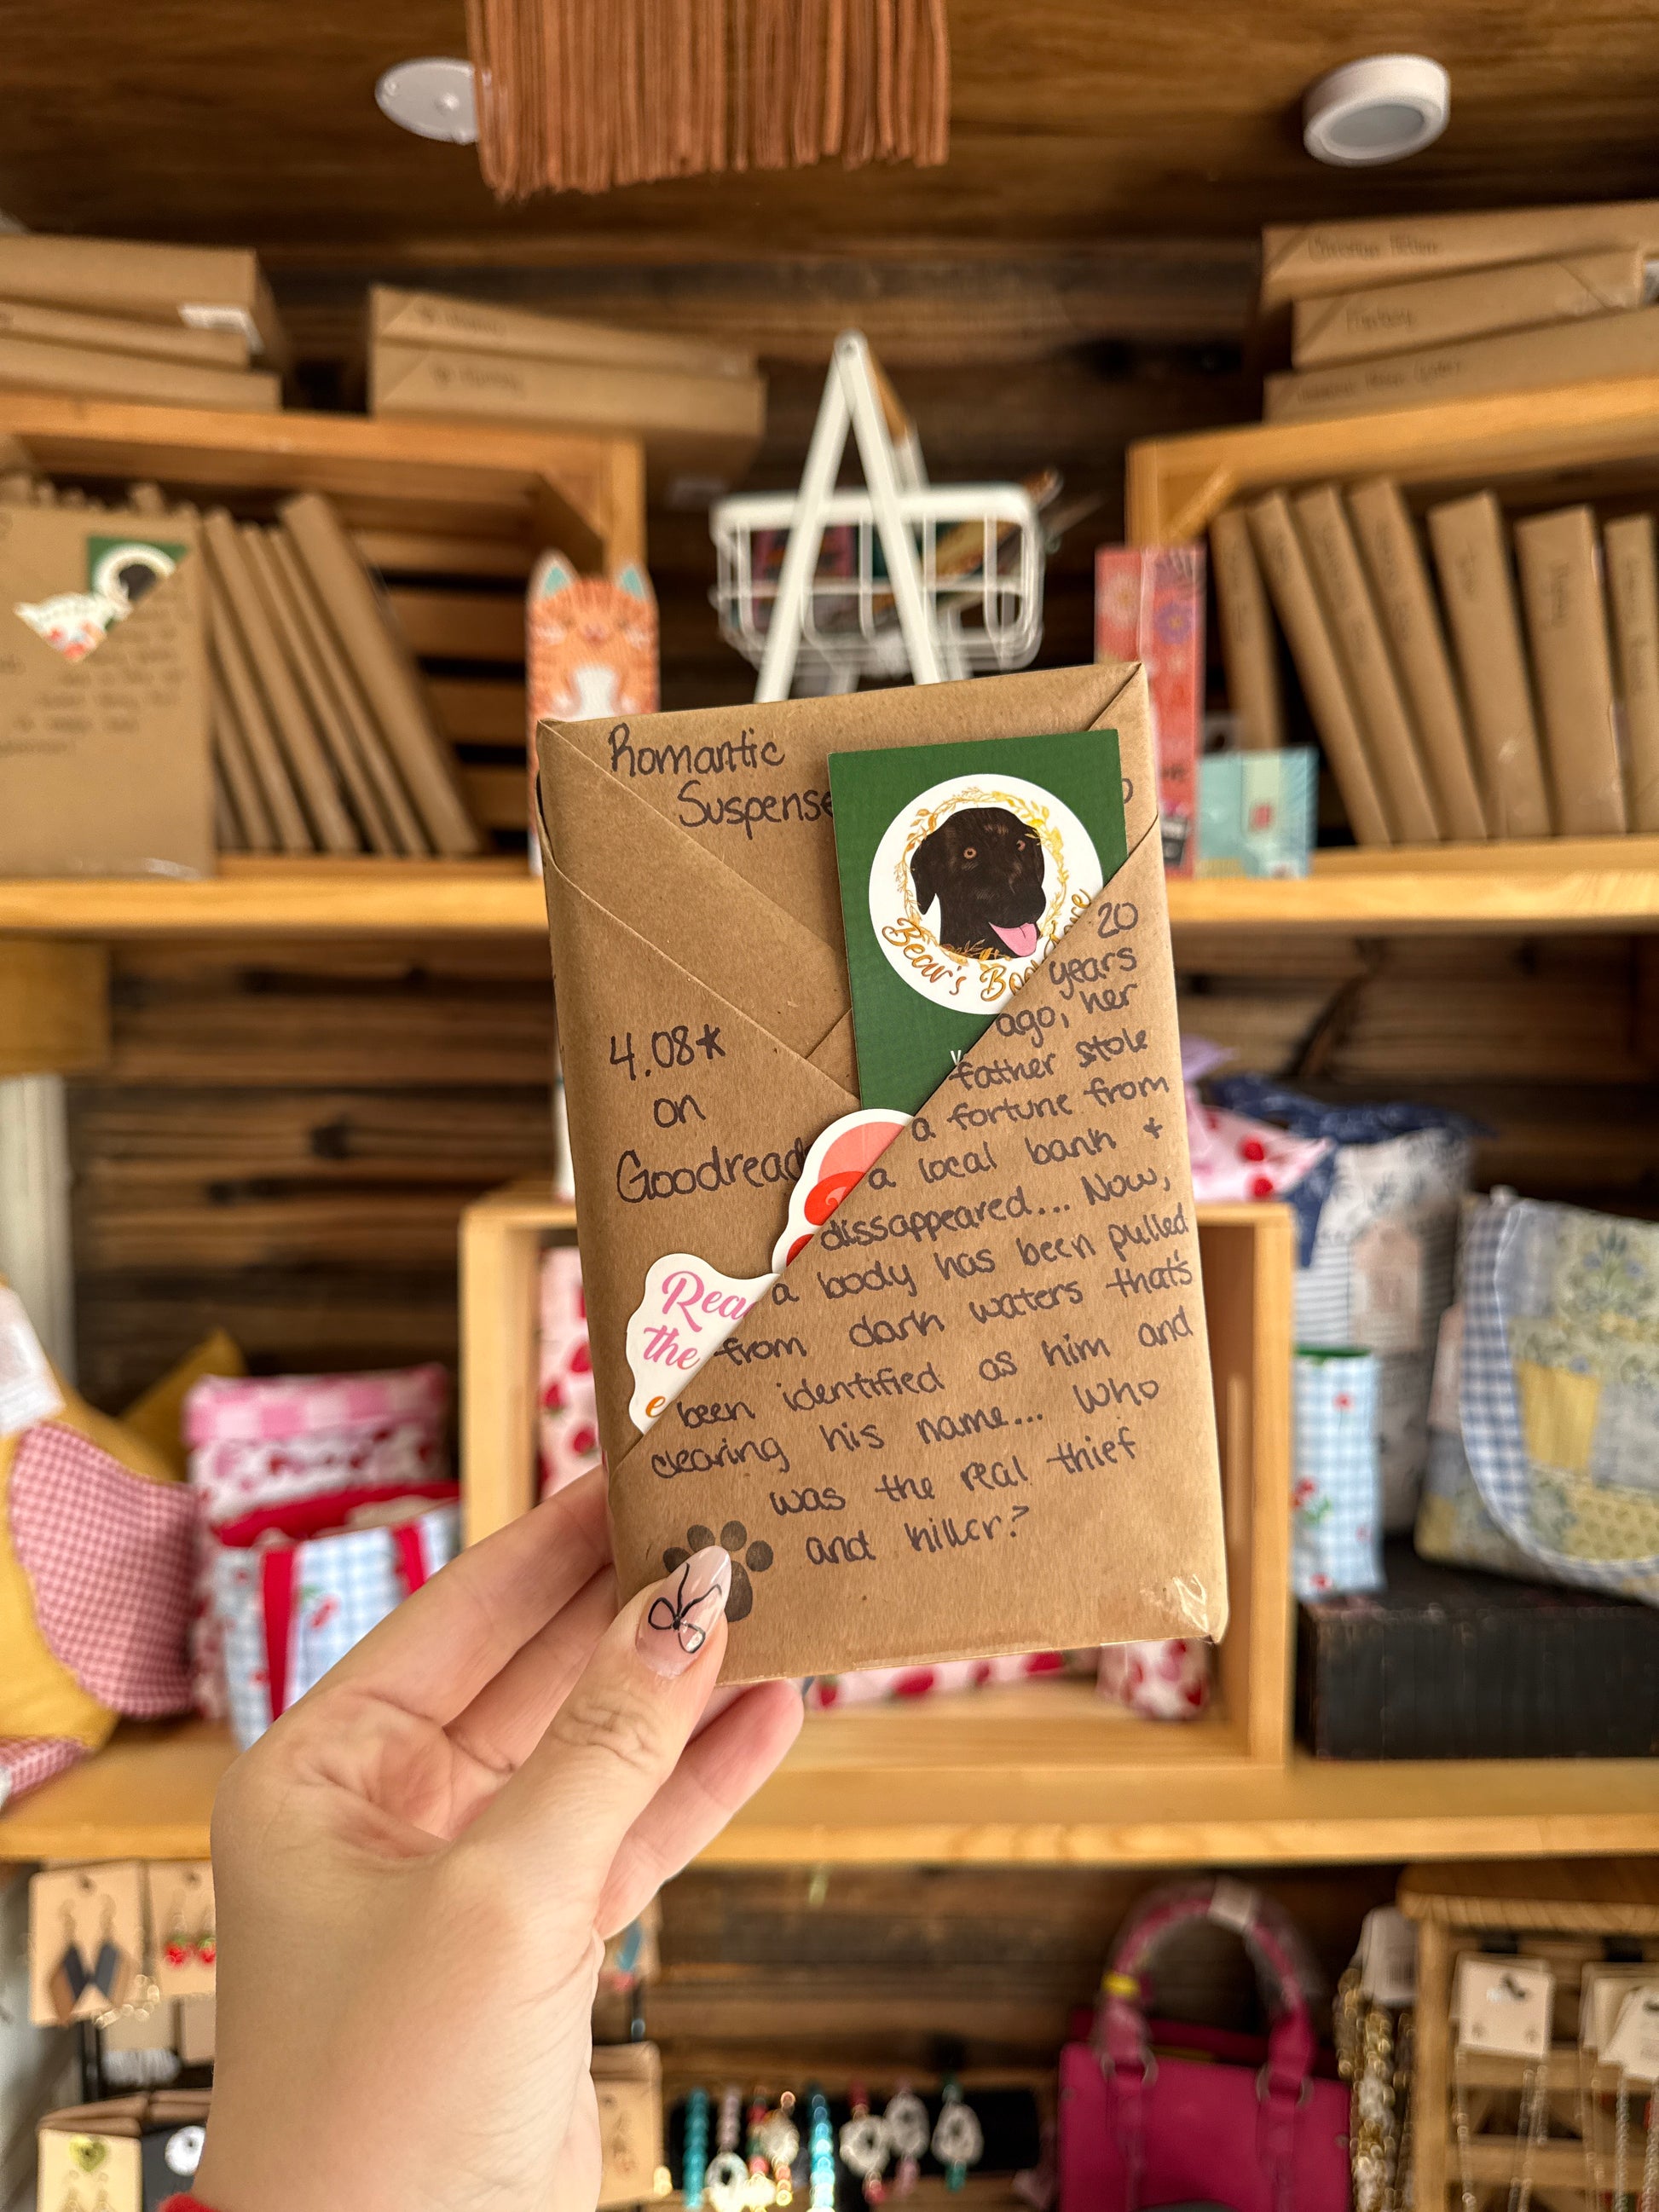 Romantic
Suspense
Bear's Boo
4.08*
on
Goodread
Rea
the
e
20
years
ago, her
father stole
a fortune from
a local bank +
dissappeared... Now,
a body has been pulled
from dark waters that's
been identified as him and
clearing his name... Who
was the real thief
and killer?
Fantasy